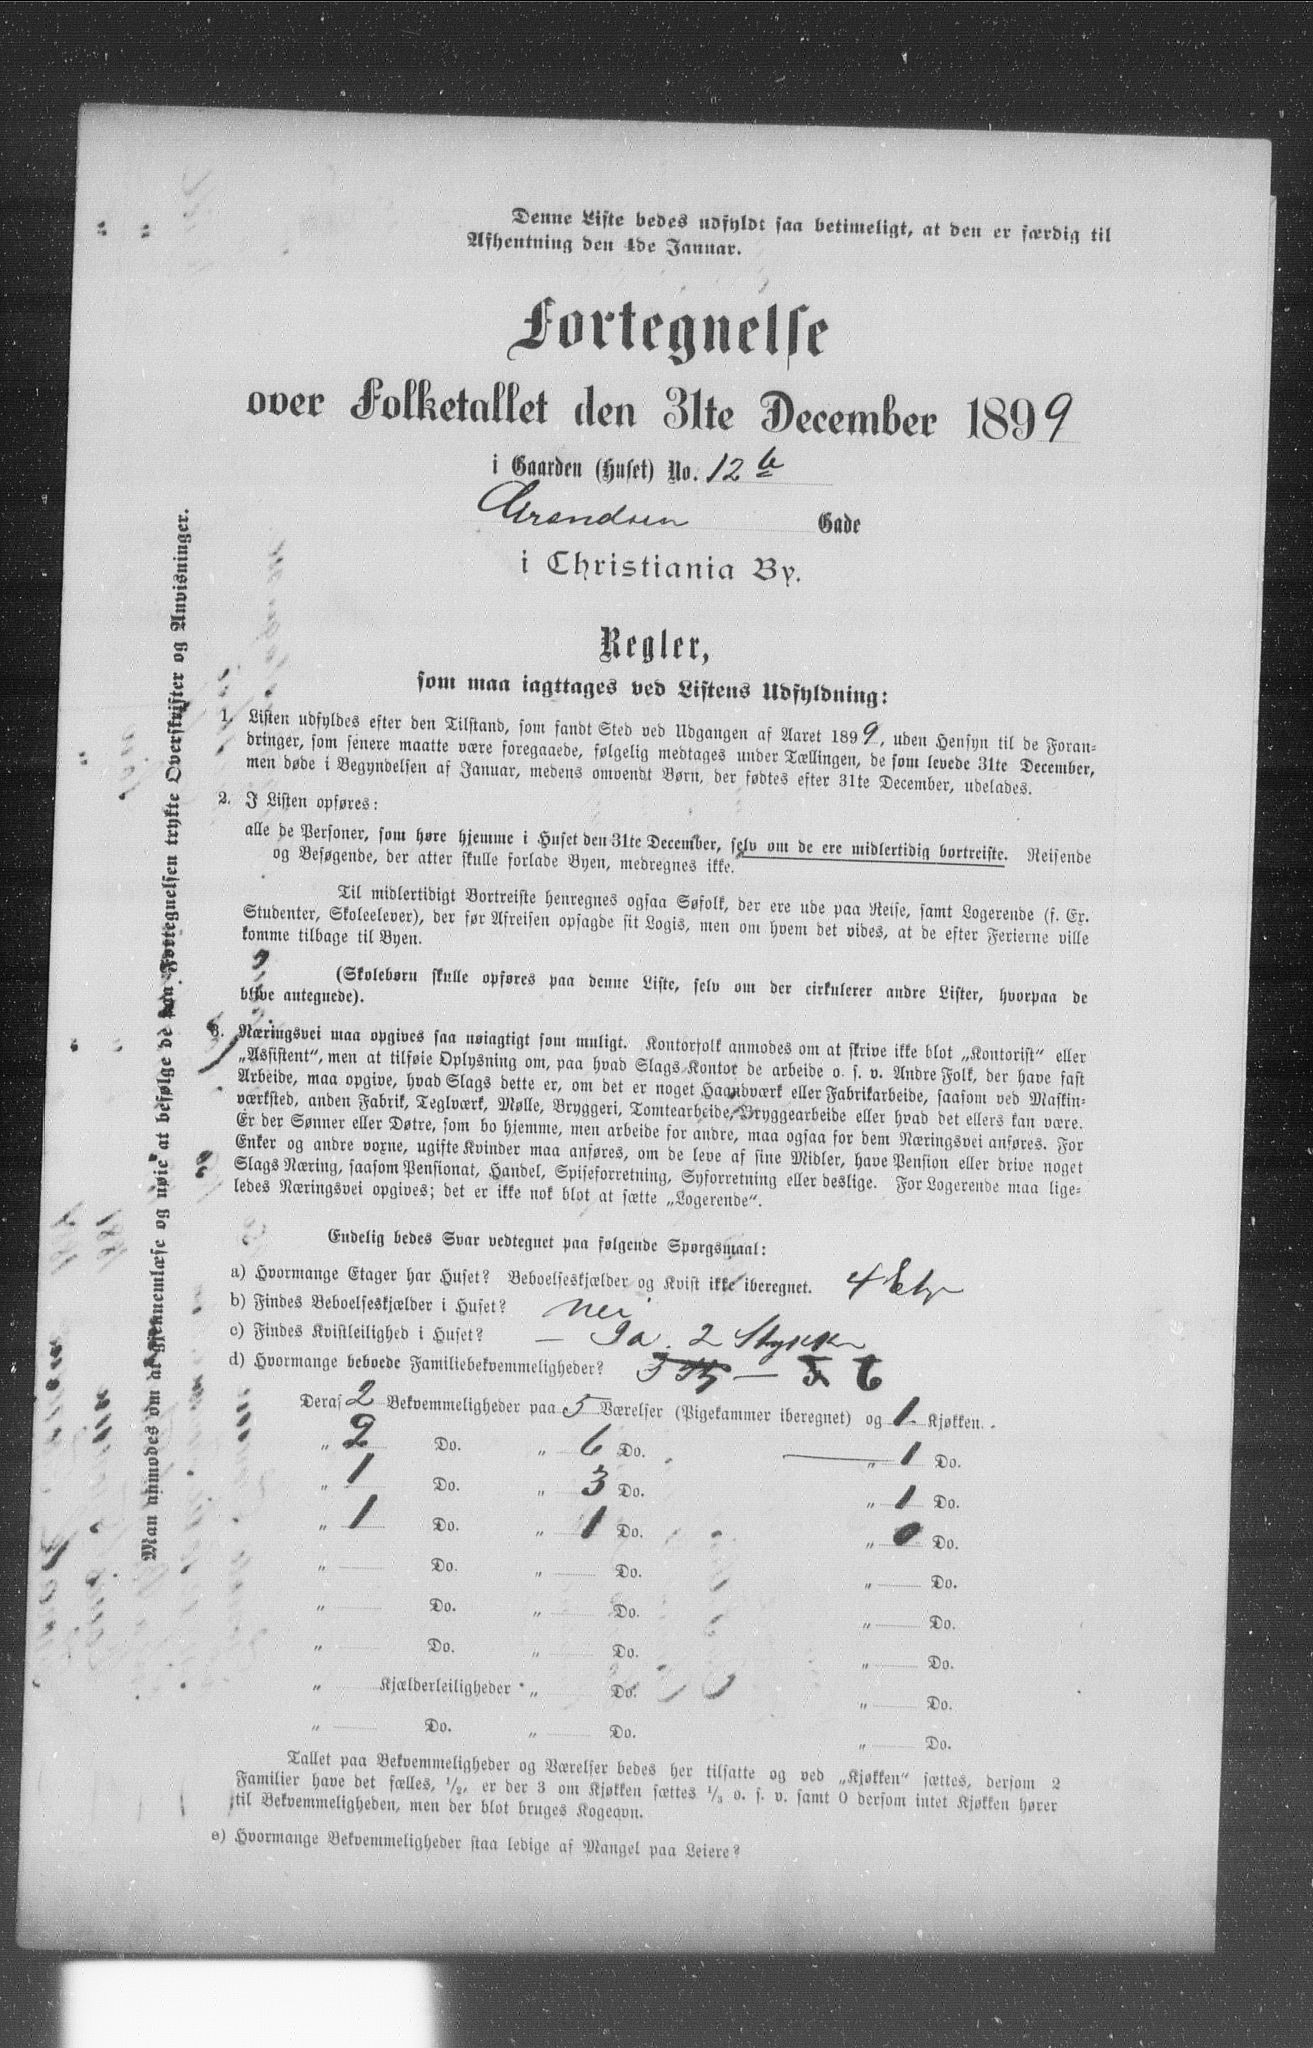 Denne Liste bedes udfyldt saa betimeligt, at den er færdig til
Afhentning den 4de Januar.
Fortegnelse
over Folketallet den 31te December 1899
i Gaarden (Huset) No. 12 b
Gade
i Christiania By.
Regler,
som maa iagttages ved Listens Udfyldning:
1. Listen udfyldes efter den Tilstand, som fandt Sted ved Udgangen af Aaret 1899, uden Hensyn til de Foran-
dringer, som senere maatte være foregaaede, følgelig medtages under Tællingen, de som levede 31te December,
men døde i Begyndelsen af Januar, medens omvendt Børn, der fødtes efter 31te December, udelades.
2. I Listen opføres:
alle de Personer, som høre hjemme i Huset den 31te December, selv om de ere midlertidig bortreiste. Reisende
og Besøgende, der atter skulle forlade Byen, medregnes ikke.
Til midlertidigt Bortreiste henregnes ogsaa Søfolk, der ere ude paa Reise, samt Logerende (f. Ex.
Studenter, Skoleelever), der før Afreisen opsagde sit Logis, men om hvem det vides, at de efter Ferierne ville
komme tilbage til Byen.
(Skolebørn skulle opføres paa denne Liste, selv om der cirkulerer andre Lister, hvorpaa de
blive antegnede).
3. Næringsvei maa opgives saa nøiagtigt som muligt. Kontorfolk anmodes om at skrive ikke blot „Kontorist“ eller
„Assistent“, men at tilføie Oplysning om, paa hvad Slags Kontor de arbeide o. s. v. Andre Folk, der have fast
Arbeide, maa opgive, hvad Slags dette er, om det er noget Haandværk eller Fabrikarbeide, saasom ved Maskin-
værksted, anden Fabrik, Teglværk, Mølle, Bryggeri, Tomtearbeide, Bryggearbeide eller hvad det ellers kan være.
Er der Sønner eller Døtre, som bo hjemme, men arbeide for andre, maa ogsaa for dem Næringsvei anføres. For
Enker og andre voxne, ugifte Kvinder maa anføres, om de leve af sine Midler, have Pension eller drive noget
Slags Næring, saasom Pensionat, Handel, Spiseforretning, Syforretning eller deslige. For Logerende maa lige-
ledes Næringsvei opgives; det er ikke nok blot at sætte „Logerende“.
Endelig bedes Svar vedtegnet paa følgende Spørgsmaal:
a) Hvormange Etager har Huset? Beboelseskjælder og Kvist ikke iberegnet. 4 Etg
b) Findes Beboelseskjælder i Huset? Nei
c) Findes Kvistleilighed i Huset? — Ja. 2 Stykker
d) Hvormange beboede Familiebekvemmeligheder? 6
Deraf 2 Bekvemmeligheder paa 5 Værelser (Pigekammer iberegnet) og 1 Kjøkken.
„ 2 Do. „ 6 Do. „ 1 Do.
„ 1 Do. „ 3 Do. „ 1 Do.
„ 1 Do. „ 1 Do. „ 0 Do.
„ Do. „ Do. „ Do.
„ Do. „ Do. „ Do.
„ Do. „ Do. „ Do.
„ Kjælderleiligheder „ Do. „ Do.
„ Do. „ Do. „ Do.
Tallet paa Bekvemmeligheder og Værelser bedes her tilsatte og ved „Kjøkken“ sættes, dersom 2
Familier have det fælles, 1/2, er der 3 om Kjøkken sættes 1/3 o. s. v. samt 0 dersom intet Kjøkken hører
til Bekvemmeligheden, men der blot bruges Kogeovn.
e) Hvormange Bekvemmeligheder staa ledige af Mangel paa Leiere?
Man anmodes om at gjennemlæse og nøie at befølge de paa Fortegnelsen trykte Overskrifter og Anvisninger.